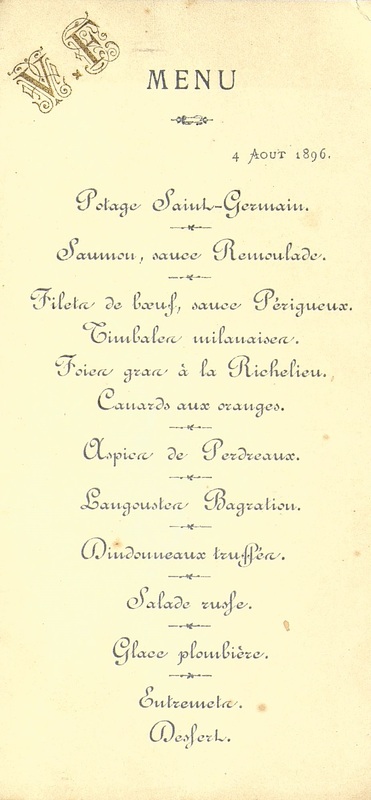 V. E
MENU
4 AOUT 1896.
Potage Saint-Germain.
Saumon, sauce Remoulade.
Filets de bœuf, sauce Périgueux.
Timbales milanaises.
Foies gras à la Richelieu.
Canards aux oranges.
Aspics de Perdreaux.
Langoustes Bagration.
Dindonneaux truffés.
Salade russe.
Glace plombière.
Entremets.
Dessert.